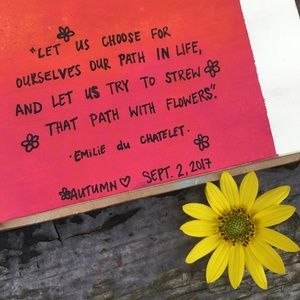 "LET US CHOOSE FOR
OURSELVES OUR PATH IN LIFE,
AND LET US TRY TO STREW
THAT PATH WITH FLOWERS."
· EMILIE DU CHATELET ·
AUTUMN♡ SEPT. 2, 2017